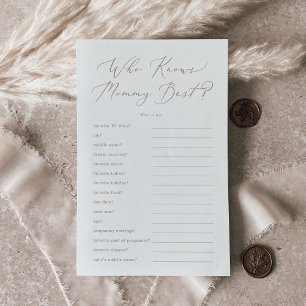 Who Knows
Mommy Best?
favorite TV show?
job?
middle name?
dream vacation?
favorite color?
favorite hobby?
favorite holiday?
favorite food?
due date?
shoe size?
age?
pregnancy cravings?
favorite part of pregnancy?
favorite season?
baby's middle name?